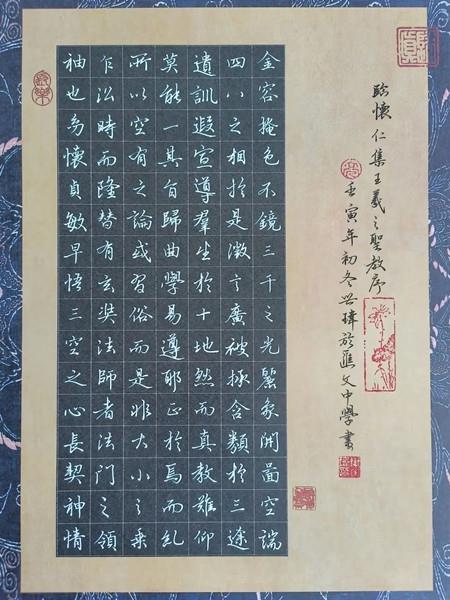 臨懷仁集王羲之聖教序
壬寅年初冬世瑋於匯文中學書
金容掩色不鏡三千之光麗象開圖空端
四八之相於是微言廣被拯含類於三途
遺訓遐宣導羣生於十地然而真教難仰
莫能一其旨歸曲學易遵耶正於焉
所以空有之論或習俗而是非大小之乘
乍沿時而隆替有玄奘法師者法門之領
袖也幼懷貞敏早悟三空之心長契神情